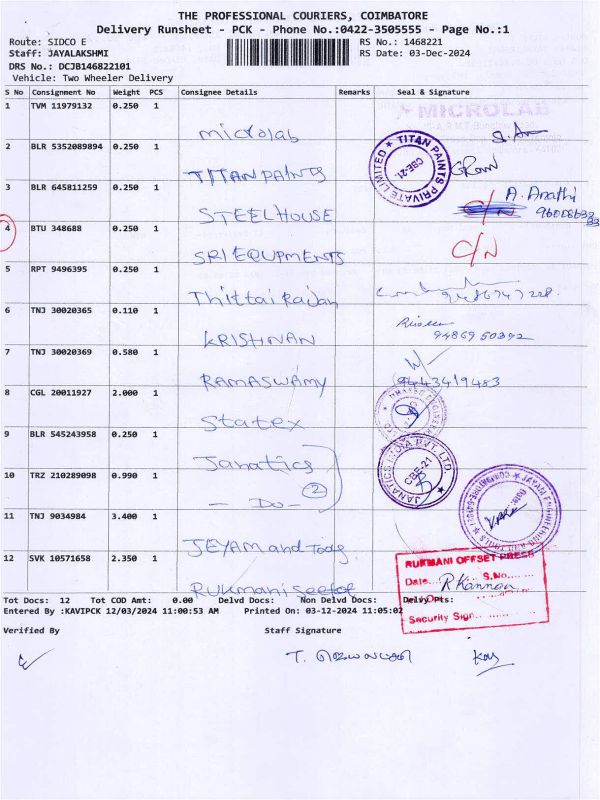 THE PROFESSIONAL COURIERS, COIMBATORE
Delivery Runsheet - PCK - Phone No.:0422-3505555 - Page No.:1
Route: SIDCO E
RS No.: 1468221
Staff: JAYALAKSHMI
RS Date: 03-Dec-2024
DRS No.: DCJB146822101
Vehicle: Two Wheeler Delivery
S No Consignment No Weight PCS Consignee Details Remarks Seal & Signature
MICROLAB
1 TVM 11979132 0.250 1 microlab
2 BLR 5352089894 0.250 1 TITAN PAINTS TITAN PAINTS PRIVATE LIMITED CBE-21.
3 BLR 645811259 0.250 1 STEELHOUSE C/N A. Arathi
4 BTU 348688 0.250 1 SRI EQUPMENTS C/N
5 RPT 9496395 0.250 1 Thittai Rajan
6 TNJ 30020365 0.110 1 KRISHNAN 9486950392
7 TNJ 30020369 0.580 1 RAMASWAMY 9443419483
8 CGL 20011927 2.000 1 Statex
9 BLR 545243958 0.250 1 Janatics JANATICS INDIA PVT. LTD. CBE-21
10 TRZ 210289098 0.990 1 - Do - 2
11 TNJ 9034984 3.400 1 JEYAM and Tools JAYAM ENGINEERING AND TOOLS
12 SVK 10571658 2.350 1 Rukmani
RUKMANI OFFSET PRESS
Date.... S.No.......
R. Kannan
Security Sign.......
Tot Docs: 12 Tot COD Amt: 0.00 Delvd Docs: Non Delvd Docs: Delvy Pts:
Entered By :KAVIPCK 12/03/2024 11:00:53 AM Printed On: 03-12-2024 11:05:02
Verified By Staff Signature